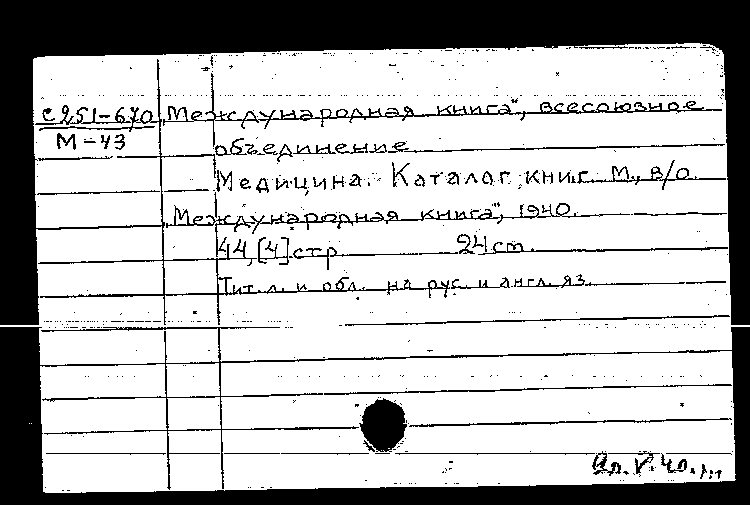 С251-670 „Международная книга“, всесоюзное
М-43
объединение
Медицина. Каталог книг. М., В/О
„Международная книга“, 1940.
44, [4] стр. 24 см.
Тит. л. и обл. на рус. и англ. яз.